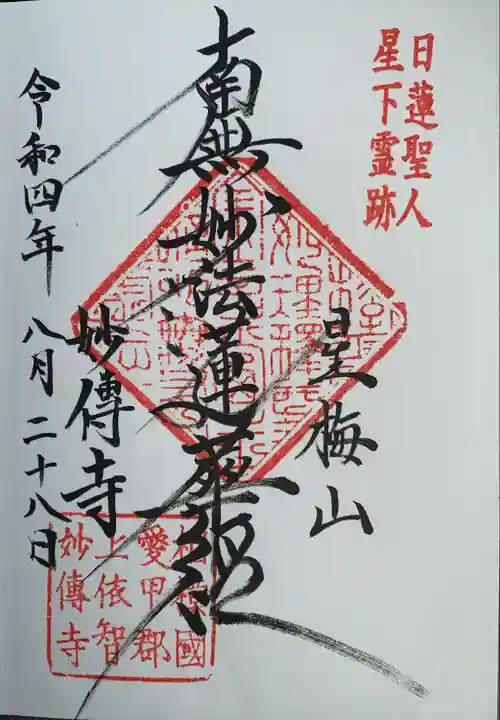 日蓮聖人
星下霊跡
星梅山
南無妙法蓮華経
妙傳寺
令和四年 八月二十八日
相模國
愛甲郡
上依智
妙傳寺